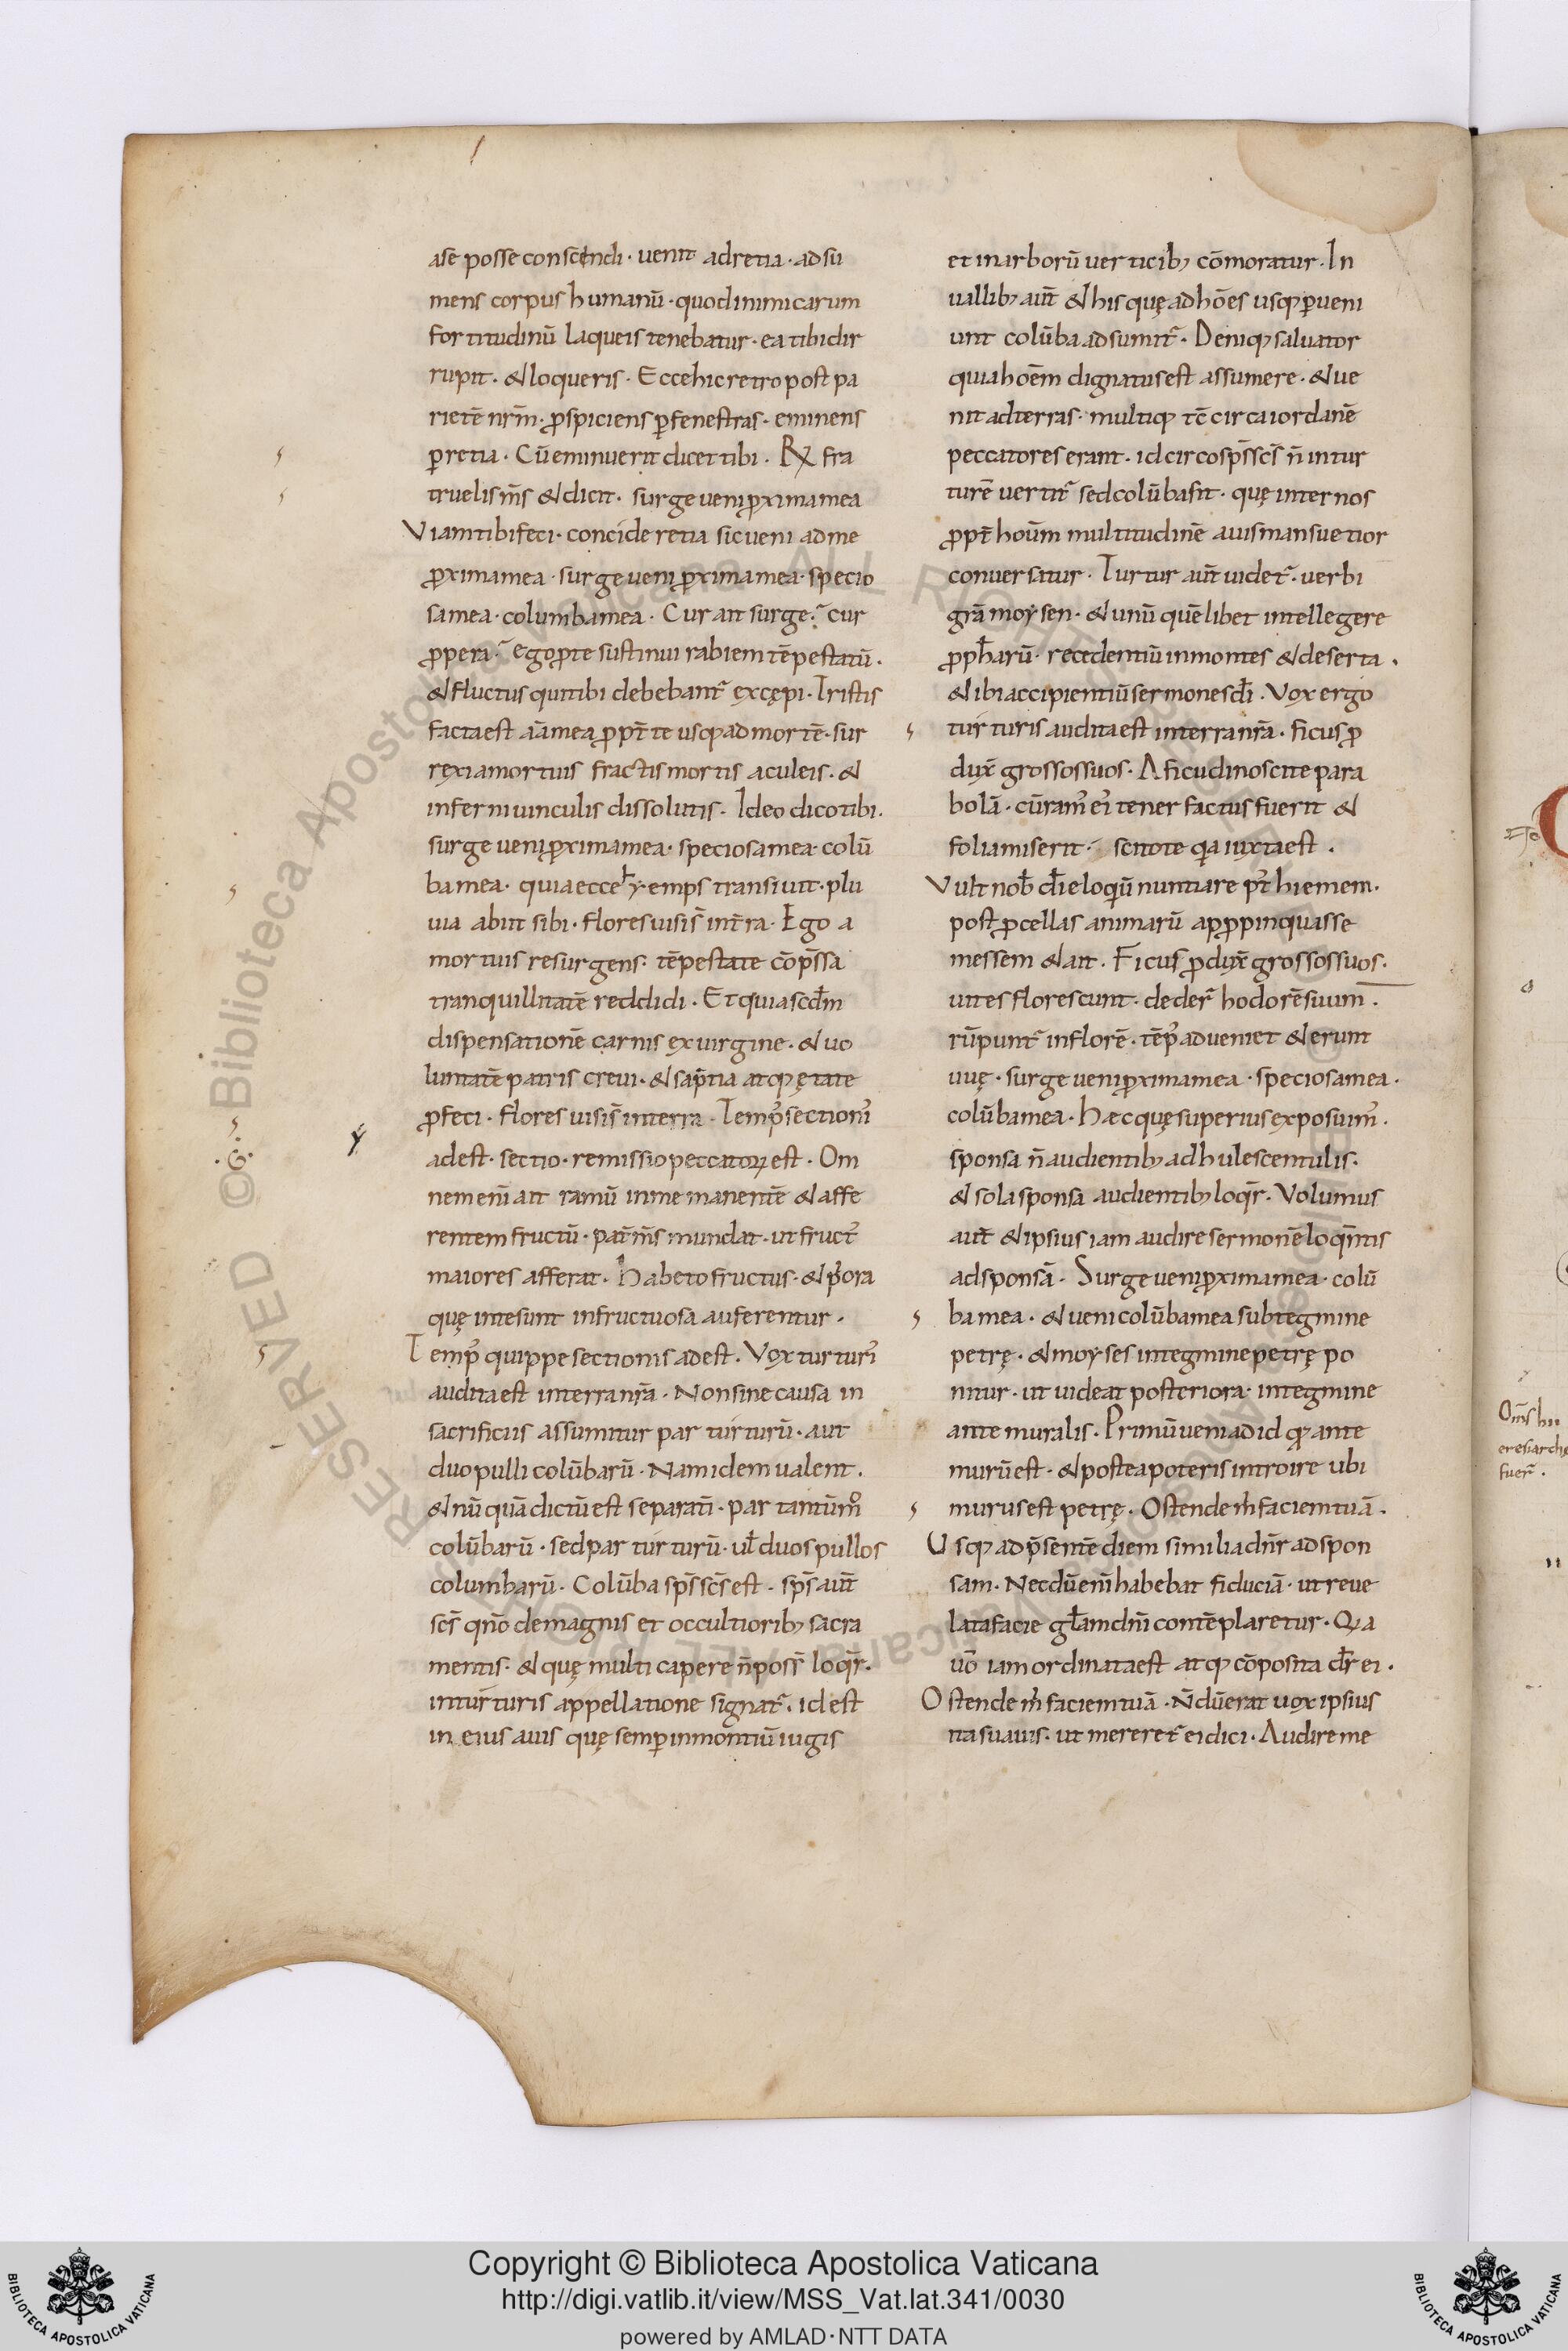 ase posse conscendi · uenit ad retia · adsu
mens corpus humanū · quod inimicarum
fortitudinū laqueis tenebatur · ea tibi dir
rupit · & loqueris · Ecce hic retro post pa
rietē nr̄m · ꝓspiciens ꝑ fenestras · eminens
ꝑ retia · Cū eminuerit dicet tibi · R fra
truelis m̄s & dicit · surge ueni ꝓxima mea
Viam tibi feci · concide retia sic ueni ad me
ꝓxima mea · surge ueni ꝓxima mea · specio
sa mea · columba mea · Cur ait surge · cur
ꝓpera · Ego ꝓ te sustinui rabiem tēpestatū ·
& fluctus qui tibi debebant᷑ excępi · Tristis
facta est aīa mea ꝓpt̄ te usq; ad mortē · sur
rexi a mortuis fractis mortis aculeis · &
inferni uinculis dissolutis · Ideo dico tibi ·
surge ueni ꝓxima mea · speciosa mea colū
ba mea · quia ecce hyemps transiuit · plu
uia abiit sibi · flores uisi s̄ in t̄ra · Ego a
mortuis resurgens · tēpestate cōp̄ssa
tranquillitatē reddidi · Et quia scd̄m
dispensationē carnis ex uirgine · & uo
luntatē patris creui · & sapn̄tia atq; ętate
ꝓfeci · flores uisi s̄ in terra · Temp᷒ sectionis
adest · sectio · remissio peccatoꝝ est · Om
nem enī ait ramū in me manentē & affe
rentem fructū · pat̄ m̄s mundat · ut fruct᷒
maiores afferat · Habeto fructus · & priora
quę in te sunt infructuosa auferentur ·
Temp᷒ quippe sectionis adest · Vox turturis
audita est in terra nr̄a · Non sine causa in
sacrificiis assumitur par turturū · aut
duo pulli colūbarū · Nam idem ualent ·
& nū quā dictū est separati · par tantūm̊
colūbarū · sed par turturū · ul̄ duos pullos
columbarū · Colūba sp̄s sc̄s est · sp̄s aūt
sc̄s qn̄o de magnis et occultiorib; sacra
mentis · & quę multi capere n̄ poss̄ loqr̄ ·
in turturis appellatione signat᷑ · id est
in eius auis quę semꝑ in montiū iugis
et in arborū uerticib; cōmoratur · In
uallib; aūt & his quę ad hōes usq; ꝑueni
unt colūba adsumit᷑ · Deniq; saluator
quia hoēm dignatus est assumere · & ue
nit ad terras · multiq; tc̄ circa iordanē
peccatores erant · idcirco sp̄s sc̄s n̄ in tur
turē uertit᷑ sed colūba fit · quę inter nos
ꝓpt̄ hoūm multitudinē auis mansuetior
conuersatur · Turtur aūt uidet᷑ · uerbi
grā moysen · & unū quēlibet intellegere
ꝓph̄arū · recedentiū in montes & deserta ·
& ibi accipientiū sermones dī · Vox ergo
turturis audita est in terra nr̄a · ficus ꝓ
dux̄ grossos suos · A ficu dinoscite para
bolā · cū ram᷒ ei᷒ tener factus fuerit &
folia miserit · scitote qa iuxta est ·
Vult nob̄ dī eloquiū nuntiare pt̄ hiemem ·
post ꝓcellas animarū apꝓpinquasse
messem & ait · Ficus ꝓdux̄ grossos suos ·
uites florescunt · deder᷑ hodorē suum ·
rūpunt᷑ in florē · tēp᷒ adueniet & erunt
uuę · surge ueni ꝓxima mea · speciosa mea ·
colūba mea · Hæc quę superius exposuim᷒ ·
sponsa n̄ audientib; adhulescentulis ·
& sola sponsa audientib; loqr̄ · Volumus
aūt & ipsius iam audire sermonē loqn̄tis
ad sponsā · Surge ueni ꝓxima mea · colū
ba mea · & ueni colūba mea sub tegmine
petrę · & moyses in tegmine petrę po
nitur · ut uideat posteriora · in tegmine
ante muralis · Primū ueni ad id qd ante
murū est · & postea poteris introire ubi
murus est petrę · Ostende m̄ faciem tuā ·
Usq; ad p̄sentē diem similia dn̄r ad spon
sam · Necdū enī habebat fiduciā · ut reue
lata facie gl̄am dn̄i contēplaretur · Qa
uō iam ordinata est atq; cōposita dr̄ ei ·
Ostende m̄ faciem tuā · N̄dū erat uox ipsius
ita suauis · ut mereret᷑ ei dici · Audire me
Om̄s hii
eresiarchę
fuer᷑ ·
© Biblioteca Apostolica Vaticana ALL RIGHTS RESERVED
Copyright © Biblioteca Apostolica Vaticana
http://digi.vatlib.it/view/MSS_Vat.lat.341/0030
powered by AMLAD·NTT DATA
BIBLIOTECA APOSTOLICA VATICANA
BIBLIOTECA APOSTOLICA VATICANA